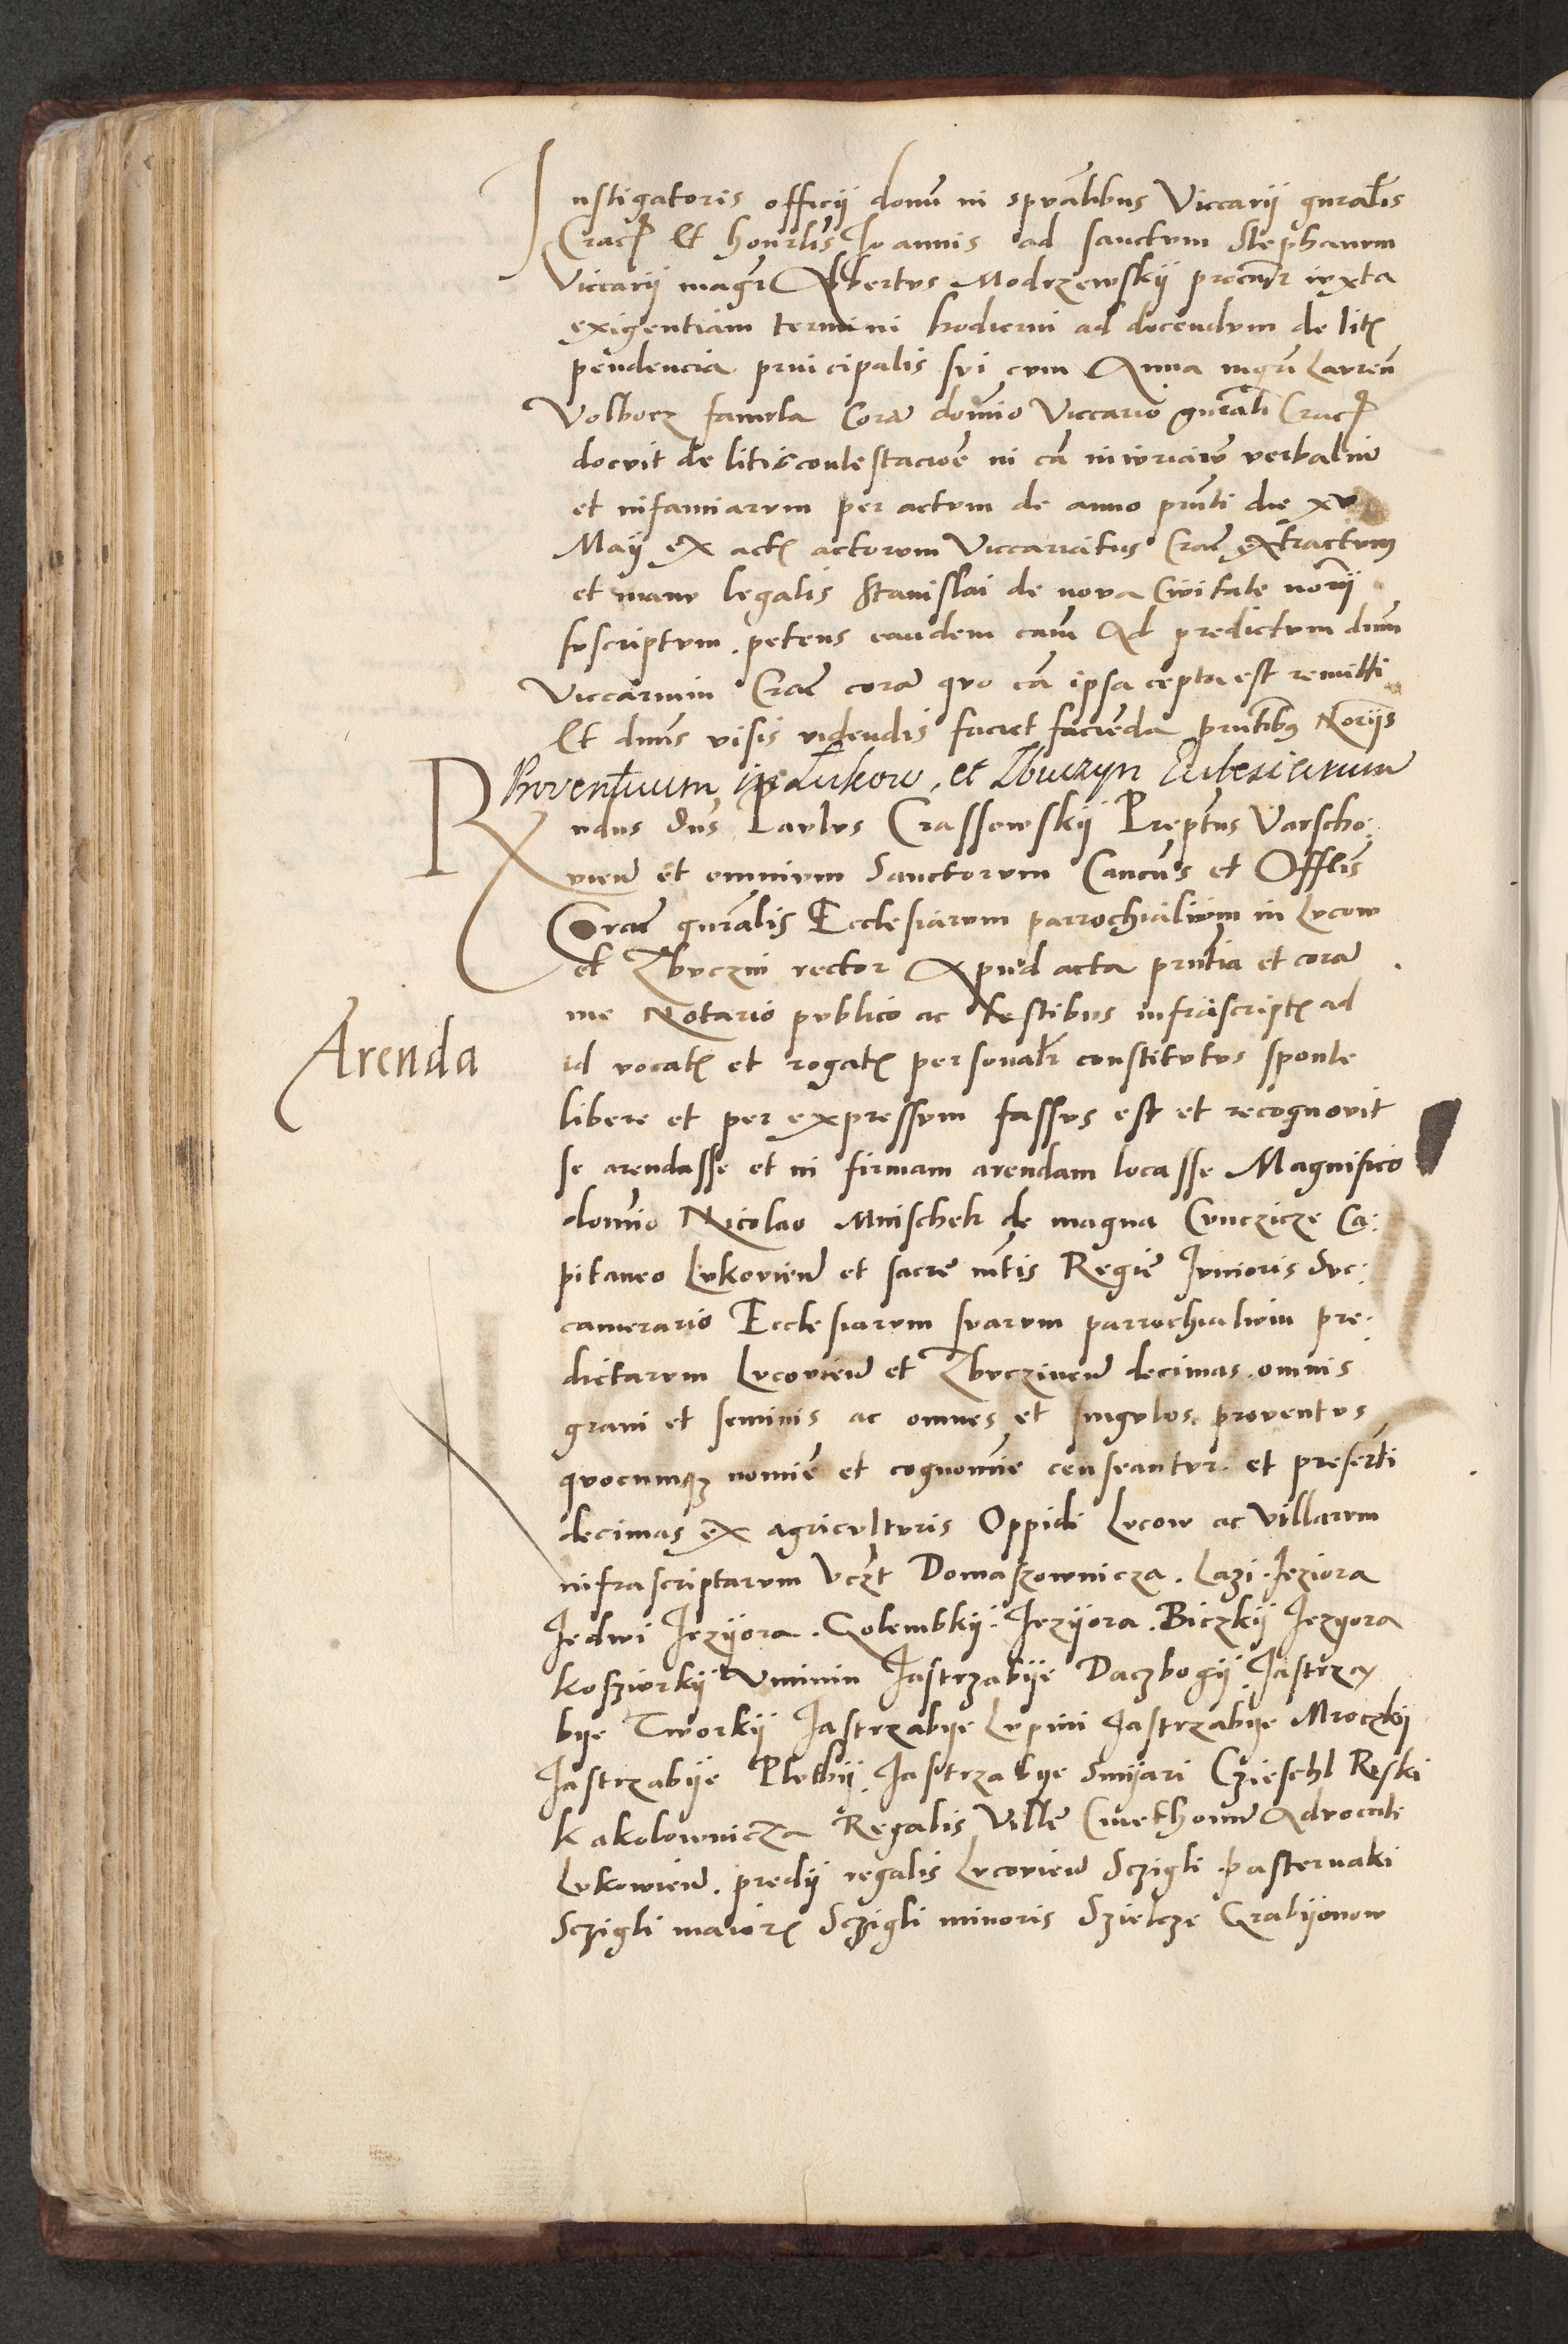 Instigatoris officii domini in spiritualibus Viccarii gnralis
Crac et honrlis Joannis ad sanctum Stephanum
Viccarii magr Albertus Modrzewskij procurr iuxta
exigentiam termini hodierni ad docendum de litis
pendencia principalis sui cum Anna mgri Lauren
Volborz famula Cora domino Viccario gnrali Crac
docuit de litis contestacioe in ca iniuriarum verbalium
et infamiarum per actum de anno prnti die xv
Maij ex actis actorum Viccariatus Crac extractum
et manu legalis Stanislai de nova Civitate norij
suscriptum. petens eandem cam Ad predictum dnum
Viccarium Crac cora quo ca ipsa cepta est remitti
Et dnus visis videndis faciet facienda prntibus Norijs
Proventuum in Lukow, et Zbuczyn Ecclesiarum
Rvndus dns Paulus Crassowskij Preptus Varscho:
vien et omnium Sanctorum Cancus et Offlis
Crac gnralis Ecclesiarum parrochialium in Lucow
et Zbuczin rector Apud acta prntia et cora
me Notario publico ac testibus infrascriptis ad
Arenda
id vocatis et rogatis personalr constitutus sponte
libere et per expressum fassus est et recognovit
se arendasse et in firmam arendam locasse Magnifico
domino Nicolao Mnischek de magna Cunczicze Ca:
pitaneo Lukovien et sacre mtis Regie Junioris suc:
camerario Ecclesiarum suarum parrochialium pre:
dictarum Lucovien et Zbuczinen decimas omnis
grani et seminis ac omnes et singulos proventus
quocumque nomie et cognomie censeantur. et presertim
decimas ex agriculturis Oppidi Lucow ac Villarum
infrascriptarum Vczt Domaszownicza. Lazi. Jeziora
Jedwi Jezijora. Golembkij. Jezijora. Biczkij Jezyora
Kosziorkij Uminin Jastrzabije Daczbogij Jastrzą
bye Tworkij Jastrzabye Lupini Jastrzabye Mroczkij
Jastrzabije Plewkij. Jastrzabye Smijari Czieschl Reski
Kakolownicza Regalis Ville Cmethonum Advocati
Lukowien. predij regalis Lucovien Sczigli pasternaki
Sczigli maioris Sczigli minoris Szielcze Grabijonow